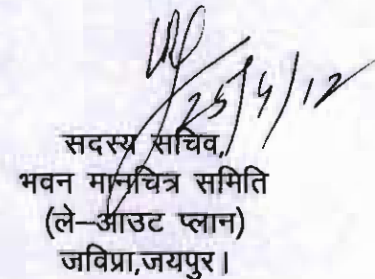 25/4/12
सदस्य सचिव,
भवन मानचित्र समिति
(ले–आउट प्लान)
जविप्रा,जयपुर।